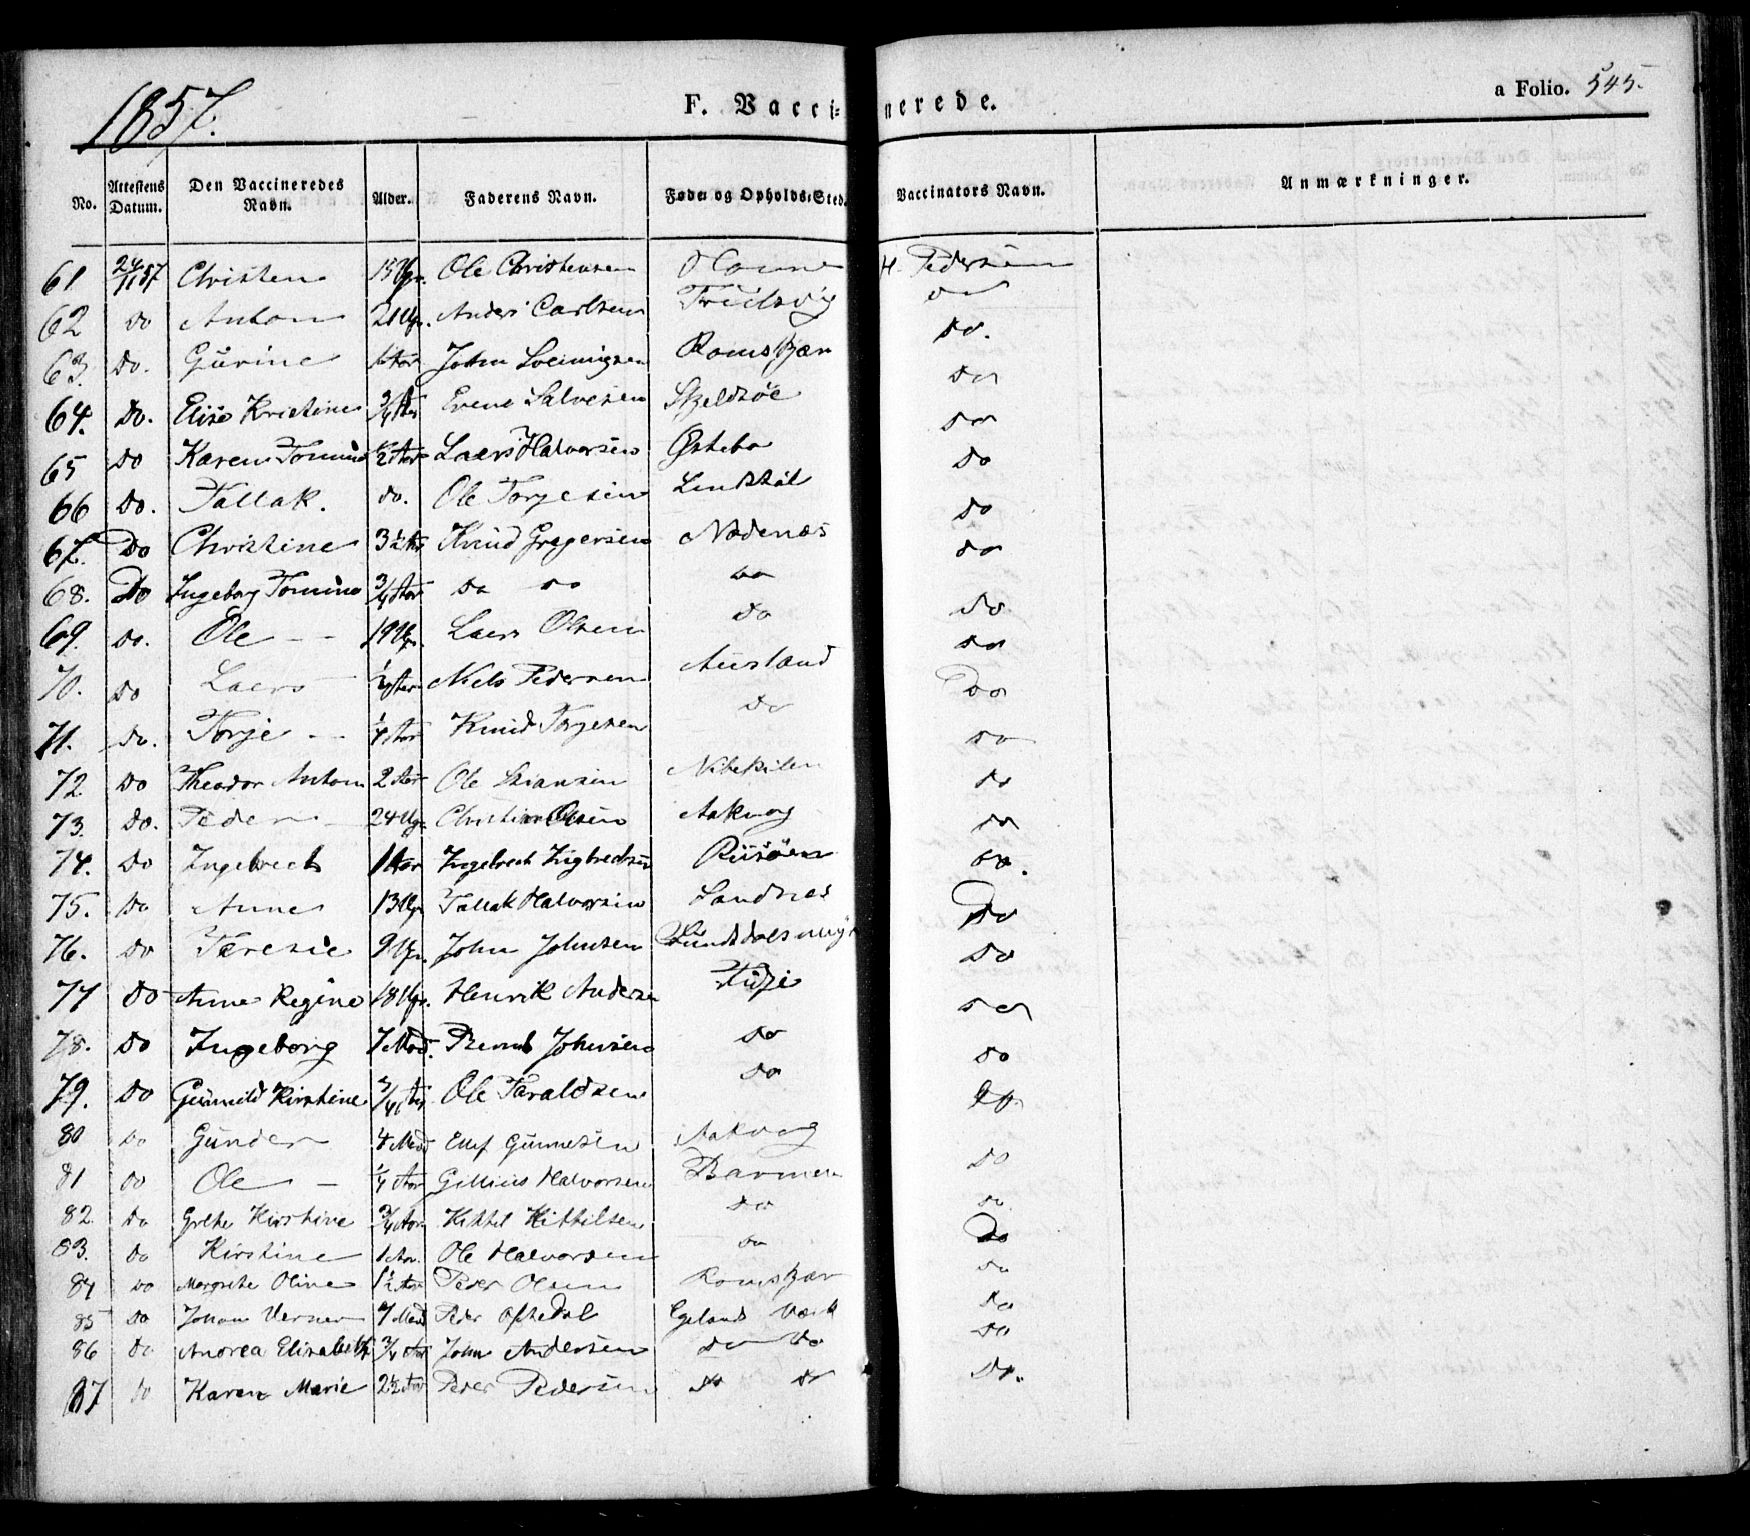 1857.
F. Vaccinerede.
a Folio. 545.
No. Attestens Datum. Den Vaccineredes Navn. Alder. Faderens Navn. Føde- og Opholds-Sted. Vaccinators Navn. Anmærkninger.
61 24/11 57 Christen 15 Ugr. Ole Christensen H. Pedersen
62 do Anton 21 Ugr. Anders Carlsen do
63. do. Gurine 1 Aar John Romskjær do.
64. do. Elise Kristine 3/4 Aar Even Salvesen Skjeldsøe do
65 do Karen 1/2 Aar Laers Halvorsen Østebø do
66 do. Tallak. do. Ole Torjesen Lindstøl do
67. Do Christine 3 1/2 Aar Knud Gregersen Nødenæs do
68. Do Ingeborg 3/4 Aar do do do do
69. do. Ole 19 Ugr. Laers Olsen do do
70. do Laers Niels Pedersen Ausland do
71. do. Torje 1/4 Aar Knud Torjesen do Do
72 do Theodor Anton 2 Aar Ole do
73. do. Peder 24 Ugr. Christian Olsen Aakvag do
74. Do Ingebrecht 1 Aar Ingebrecht Ingbredsen Riisøen do
75. do Anne 13 Ugr Tallak Halvorsen Sandnes do.
76. do Teresie 9 Ugr. John Johnsen Do
77 Do Anne Regine 18 Ugr. Henrik Andersen do
78. do Ingeborg 7 Mod. Bernt Johnsen do do
79. do Gunnild Kirstine 3/4 Aar Ole Taraldsen do do
80 do Gunder 4 Mod Aakvag do
81 do Ole 1/4 Aar Halvorsen Barmen do
82. do Grethe Kirstine 3/4 Aar Kittel Kittilsen do do
83. do Kirstine 1 Aar. Ole Halvorsen do do
84 do Margrethe Oline 1 1/2 Aar Peder Olsen Romskjær do
85 do Johan Verner 7 Mod Peder Oftedal Egelands Værk do
86 do Andrea Elisabeth 3/4 Aar John Andersen do do do
87 do Karen Marie 2 1/2 Aar Peder Pedersen do do do.